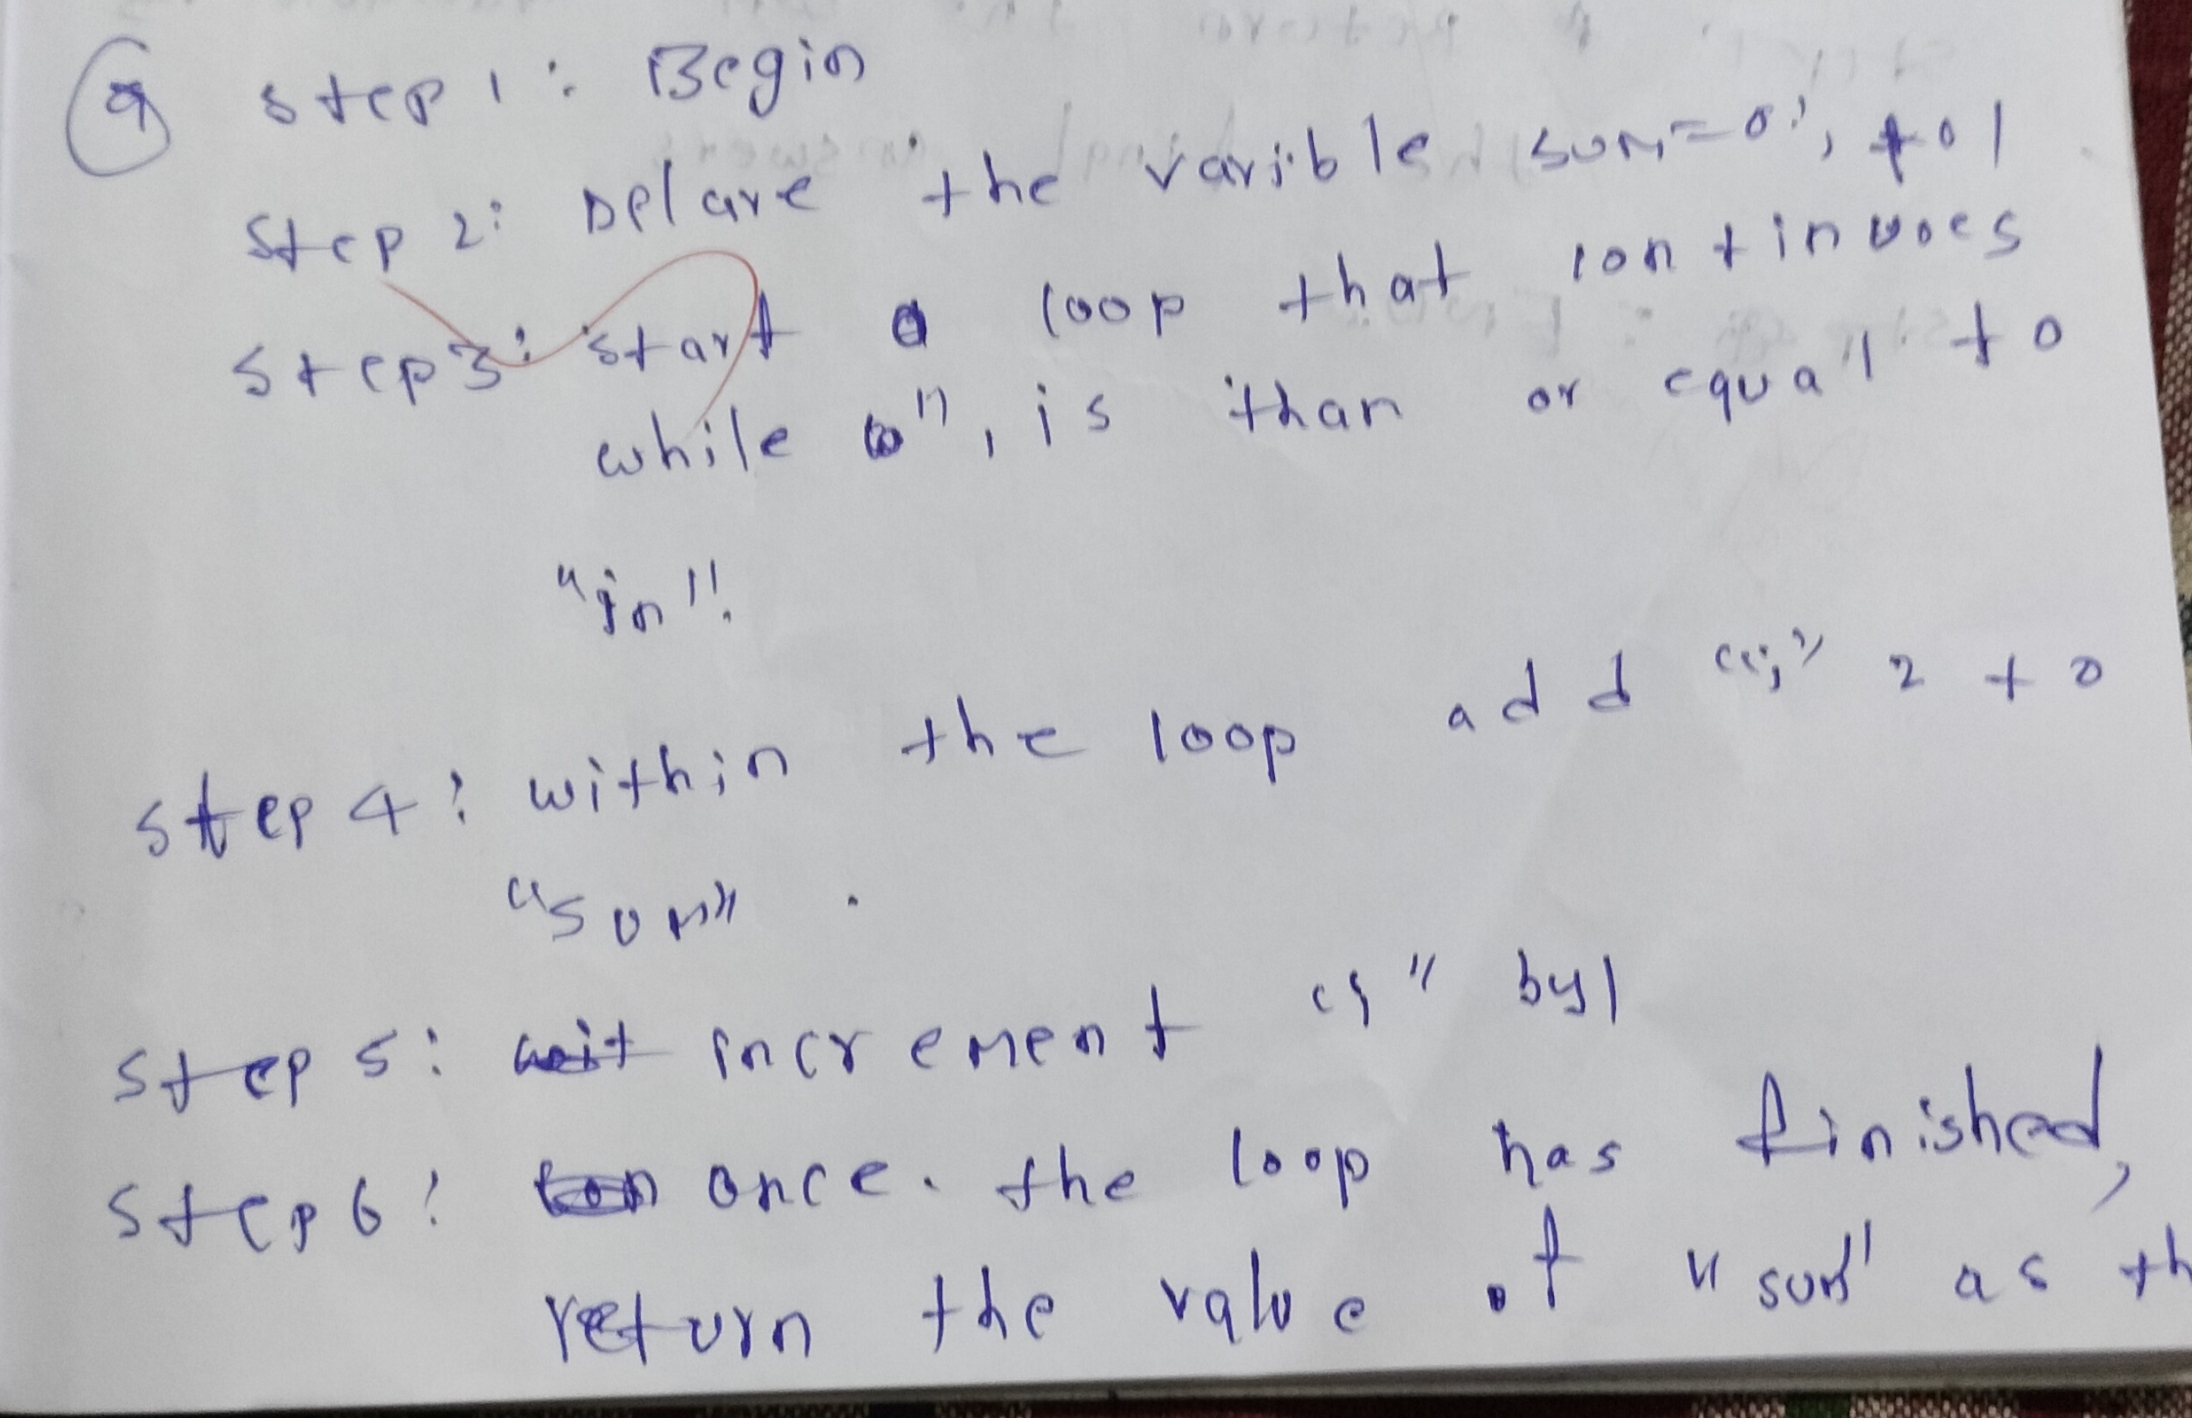 9 Step 1: Begin
Step 2: Delare the varible sum=0; to 1
Step 3: start a loop that continuoes
while "", is than or equal to
"in".
Step 4: within the loop add "i" 2 to
"sum".
Step 5: increment "i" by 1
Step 6: once. the loop has finished,
return the value of "sum" as th